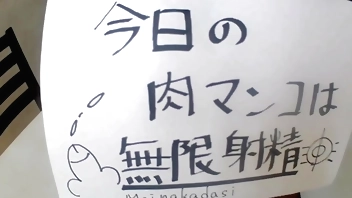 今日の
肉マンコは
無限射精
Meinakadasi